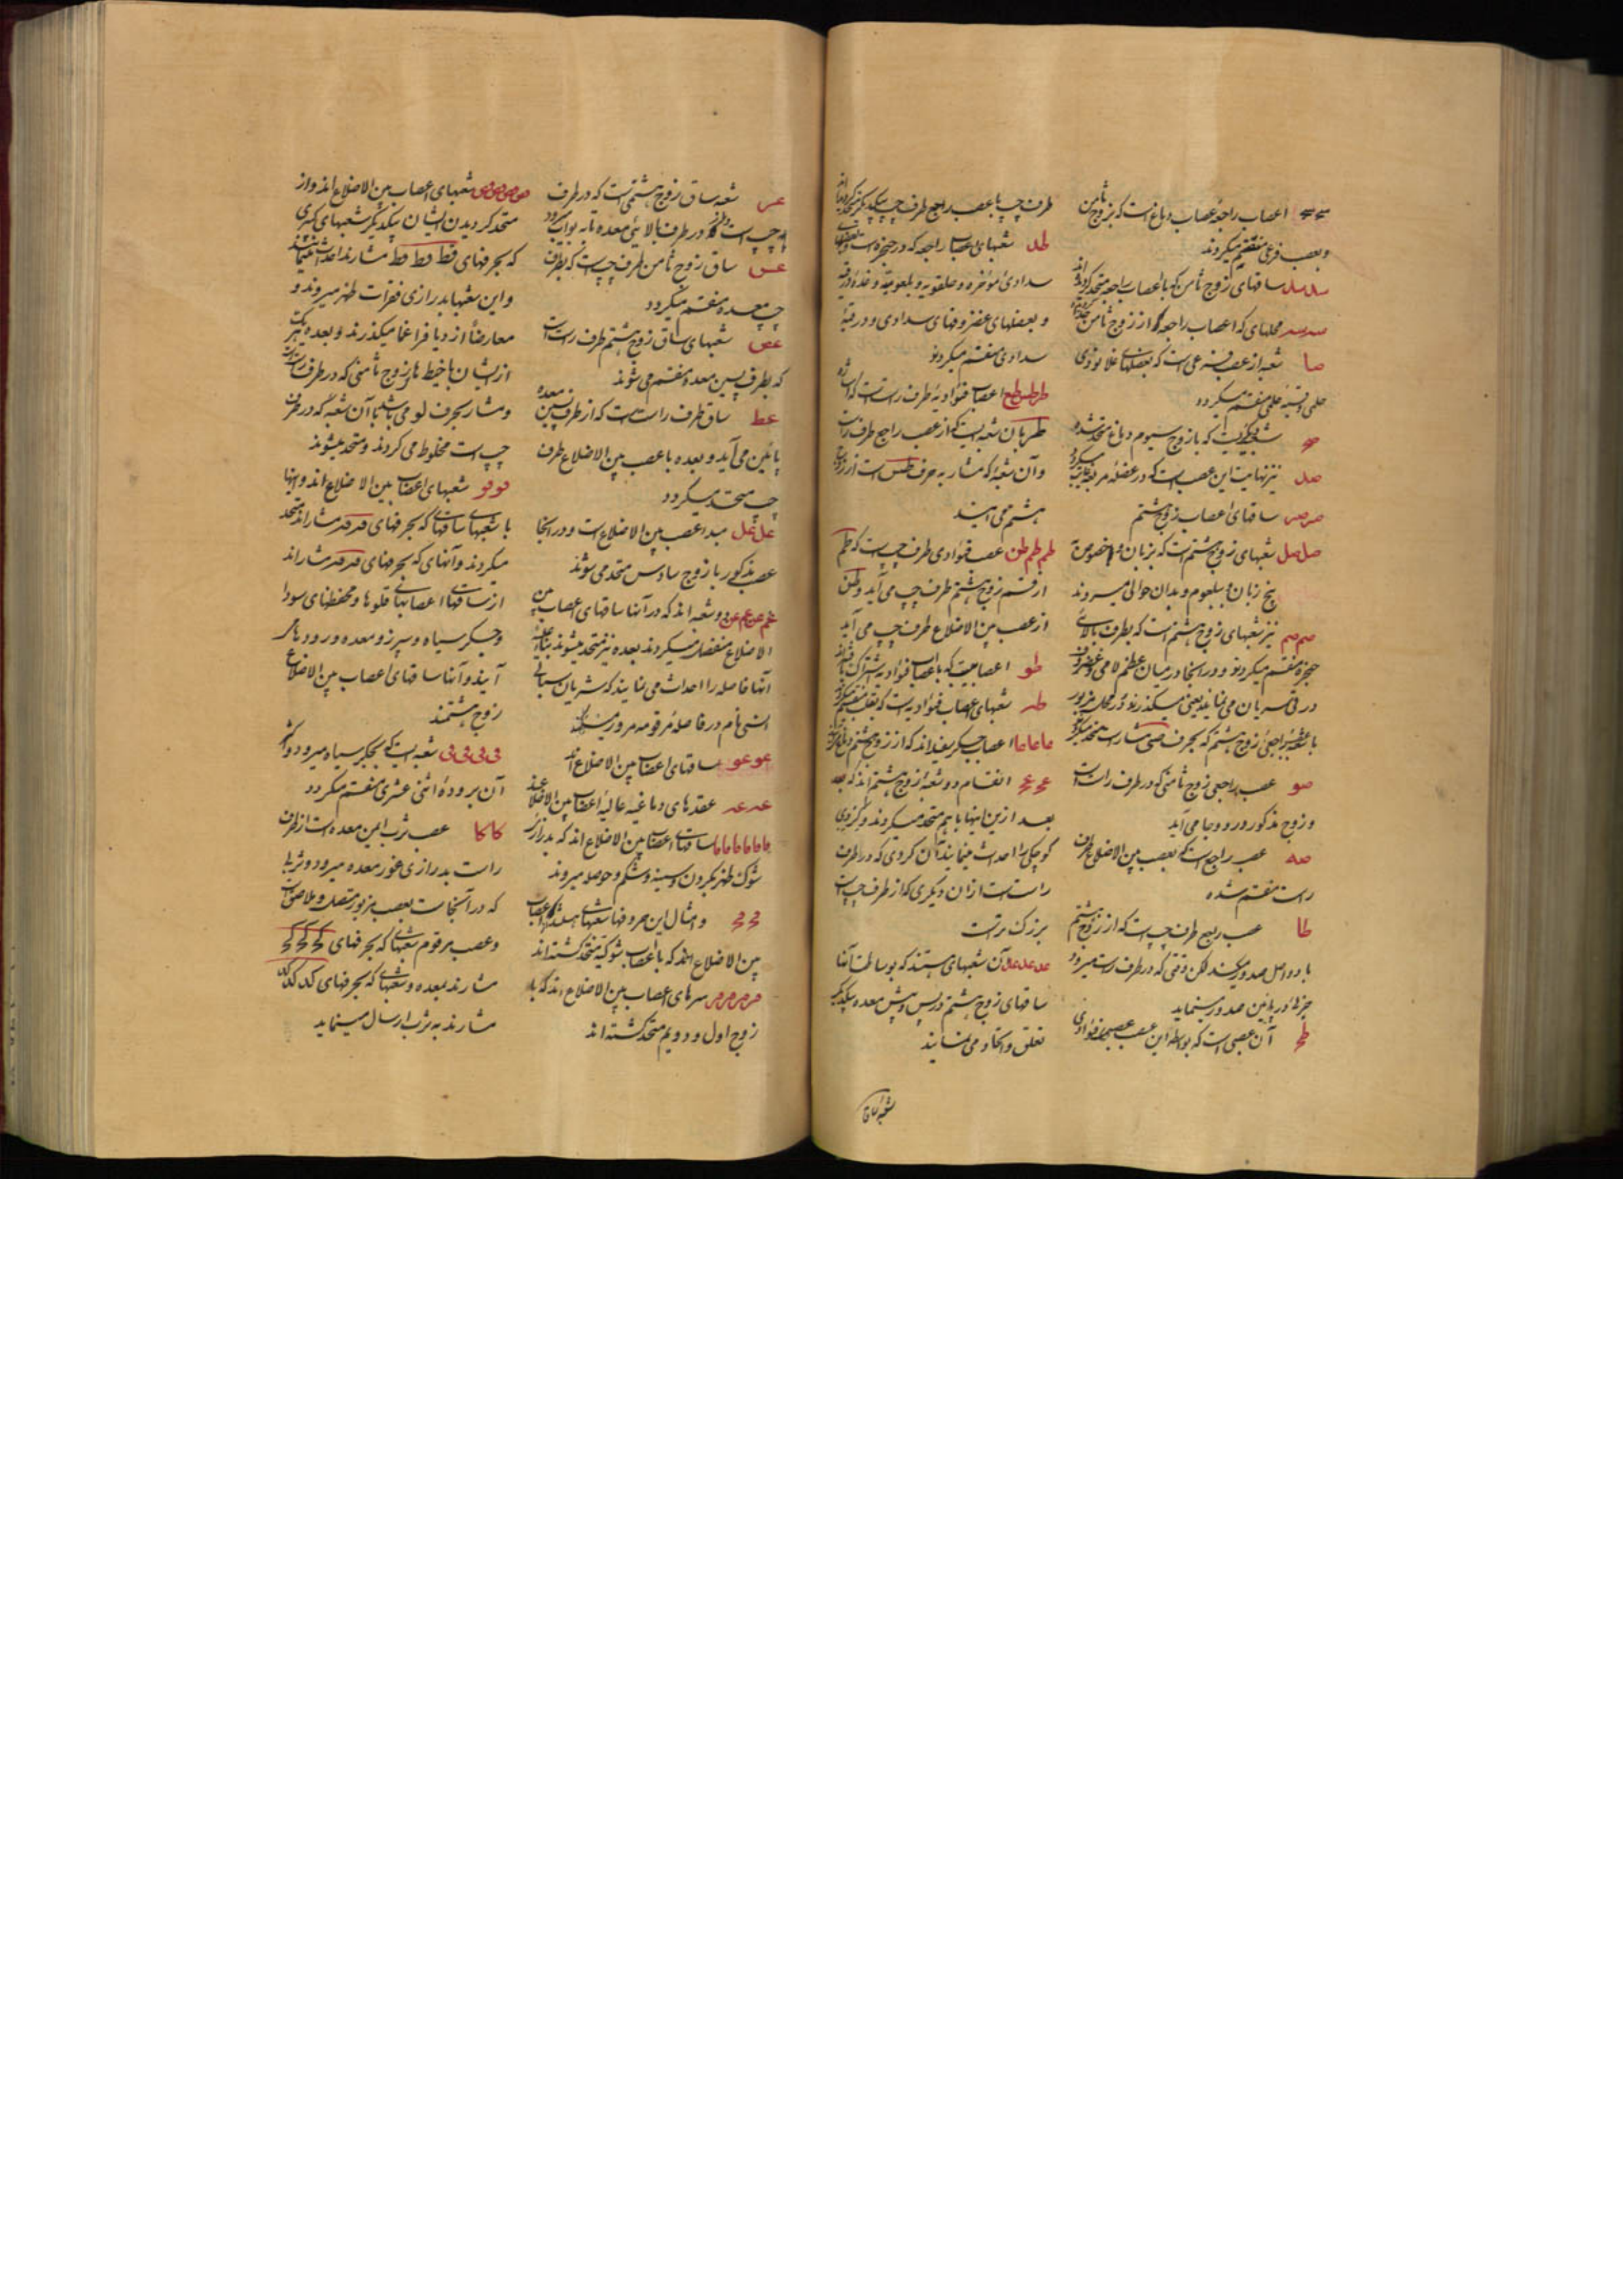 اعصاب راجعهٔ عصاب دماغ است که بزوج ثامن
و بعصب فرعی منقسم میکردند
سل سل ساقهای زوج ثامن که با اعصاب راجعه متحد کردیده اند
سر سر محلهای که اعصاب راجعه از زوج ثامن
صا شعبه از عصب
حلمی و قسیهٔ حلمی منقسم میکردد
که با زوج سیوم دماغ متحد شده
صل نیز نهایت این عصب است که در عضلهٔ مربعه
صر صر ساقهای اعصاب زوج هشتم
صل صل شعبهای زوج هشتم است که بزبان و بخصوص
بیخ زبان و بلعوم و بدان حوالی میروند
صم صم نیز شعبهای زوج هشتم است که بطرف بالای
حنجره منقسم میکردند و در آنجا در میان عظم لامی و غضروف
درقی سریان می نمایند یعنی میکذرند و در محل مزبور
با شعبهٔ راجعی زوج هشتم که بحرف صی مشار است متحد میکردد
صو عصب راجعی زوج ثامنی که در طرف راست است
و زوج مذکور در و وجا می آید
صه عصب راجع است که بعصب بین الاضلاع طرف
راست منقسم شده
طا عصب راجع طرف چپ است که از زوج هشتم
با دو اصل صدور میکند لکن وقتی که در طرف راست میرود
جزئی در پایین صدور مینماید
طح آن عصبی است که بواسطه این عصب عصبهای فوادی
طرف چپ با عصب راجع طرف چپ بیکدیکر
طد شعبهای عصاب راجعه که در حنجره است و بعضلهای
سدادی مؤخره و حلقویه و بلعومیه و غدهٔ درقیه
و بعضلهای غضروفهای سدادی و درقیهٔ
سدادی منقسم میکردند
طر طس طع اعصاب فوادیهٔ طرف راست است که
طر بان شعبه ایست که از عصب راجع طرف راست
و آن شعبهٔ که مشار به حرف طس است از زوج
هشتم می آیند
طم طم طن عصب فوادی طرف چپ است که طم
از قسم زوج هشتم طرف چپ می آید و طن
از عصب بین الاضلاع طرف چپ می آید
طو اعصابیست که با اعصاب فوادیه اشتراک
طه شعبهای اعصاب فوادیه است که بقلب منقسم میکردند
عا عا عا عا اعصاب جکر یفه اند که از زوج هشتم دماغ
عح عح انقسام دو شعبهٔ زوج هشتم اند که
بعد از این اینها با هم متحد میکردند و کردی
کوچکی را احداث مینمایند آن کردی که در طرف
راست است از آن دیکری که از طرف چپ است
بزرک تر است
عد عد عد آن شعبهای هستند که بوساطت آنها
ساقهای زوج هشتم در پس و پیش معده بیکدیکر
تعلق و اتحاد می نمایند
شعبه ساق
عر شعبه ساق زوج هشتمی است که در طرف
چپ است و از در طرف بالائی معده تا به بواب میرود
عس ساق زوج ثامن طرف چپ است که بطرف
چپ معده منقسم میکردد
عص شعبهای ساق زوج هشتم طرف راست است
که بطرف پسین معده منقسم می شوند
عط ساق طرف راست است که از طرف پسین معده
پائین می آید و بعده با عصب بین الاضلاع طرف
چپ متحد میکردد
عل عل مبدا عصب بین الاضلاع است و در آنجا
عصب مذکور با زوج سادس متحد می شوند
عم عن عم عن دو شعبه اند که در آنها ساقهای اعصاب بین
الاضلاع منفصل میکردند بعده نیز متحد میشوند بناءً علیه
آنها فاصله را احداث می نمایند که شریان سباتی
اسنی نام در فاصلهٔ مرقومه مرور میکند
عو عو ساقهای اعصاب بین الاضلاع اند
عه عه عقدهای دماغیهٔ عالیهٔ اعصاب بین الاضلاع
فا فا فا فا فا فا ساقهای اعصاب بین الاضلاع اند که بدرازی
شوک ظهر بکردن و سینه و شکم و حوصله میروند
فح فح و امثال این حروفها شعبهای هستند از اعصاب
بین الاضلاع اند که با اعصاب شوکیه متحد کشته اند
فر فر فر فر سرهای اعصاب بین الاضلاع اند که با
زوج اول و دویم متحد کشته اند
فص فص فص فص شعبهای اعصاب بین الاضلاع اند و از
متحد کردیدن ایشان بیکدیکر شعبهای کبری
که بحرفهای قط قط قط مشارند احداث مینمایند
و این شعبها بدرازی فقرات ظهر میروند و
معارضاً از دیافراغما میکذرند و بعده یک شعبه
از ایشان با خیطهای زوج ثامنی که در طرف راست
و مشار بحرف لو می باشند با آن شعبه که در طرف
چپ است مخلوط می کردند و متحد میشوند
فو فو شعبهای اعصاب بین الاضلاع اند و اینها
با شعبهای ساقهای که بحرفهای فه فه مشار اند متحد
میکردند و آنهای که بحرفهای فه فه مشار اند
از ساقهای اعصابهای قلوها و محفظهای سودا
و جکر سیاه و سپرز و معده و رودها بر
آیند و آنها ساقهای اعصاب بین الاضلاع
زوج هشتمند
فی فی فی فی شعبه ایست که بجکر سیاه میرود و اکثر
آن بر رودهٔ اثنی عشری منقسم میکردد
کا کا عصب ثرب ایمن معده است از طرف
راست بدرازی غور معده میرود و ثرب را
که در آنجاست بعصب مزبور متصل و ملاصق است
و عصب مرقوم شعبهای که بحرفهای کح کح کح
مشارند بمعده و شعبهای که بحرفهای کد کد کد
مشارند به ثرب ارسال مینماید